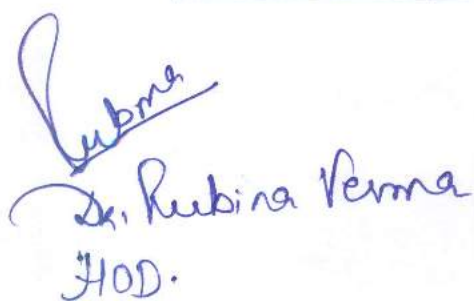 Rubina
Dr. Rubina Verma
HOD.